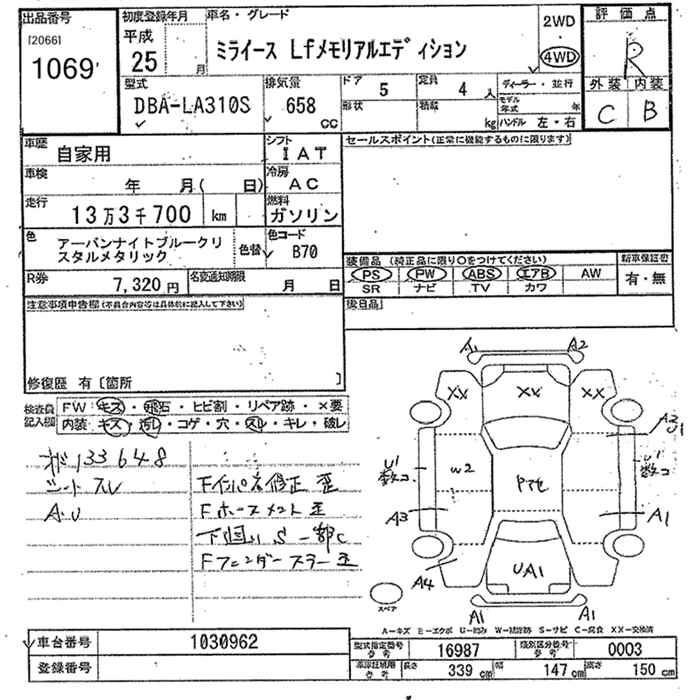 出品番号
[2066]
1069
初度登録年月
平成
25 月
車名・グレード
ミライース Lfメモリアルエディション
2WD
4WD
評価点
R
外装 内装
C B
型式
DBA-LA310S
排気量
658 cc
ドア 5
定員 4 人
形状
積載 kg
ディーラー・並行
モデル年式 年
ハンドル 左・右
車歴 自家用
シフト IAT
車検 年 月( 日)
冷房 AC
走行 13万3千700 km
燃料 ガソリン
色 アーバンナイトブルークリスタルメタリック
色替
色コード B70
R券 7,320 円
名変通知期限 月 日
セールスポイント(正常に機能するものに限ります)
装備品 (純正品に限り○をつけてください)
PS PW ABS エアB AW
SR ナビ TV カワ
新車保証書
有・無
後日品
注意事項申告欄(不具合内容等は具体的に記入して下さい)
修復歴 有〔箇所 〕
検査員記入欄
FW キズ・飛石・ヒビ割・リペア跡・×要
内装 キズ・汚レ・コゲ・穴・スレ・キレ・破レ
133648
シート スレ
A.U
Fインパネ修正 歪
Fホースメント歪
下回り S 一部C
Fフェンダーステー歪
A1 A2
XX XX XX
A2
U1
U1
数コ
W2
U1
数コ
A3
A1
A4
UA1
A1 A1
スペア
A－キズ E－エクボ U－凹み W－補修跡 S－サビ C－腐食 XX－交換済
車台番号 1030962
登録番号
型式指定番号 参考 16987
類別区分番号 参考 0003
車庫証明用 参考 長さ 339 cm 幅 147 cm 高さ 150 cm